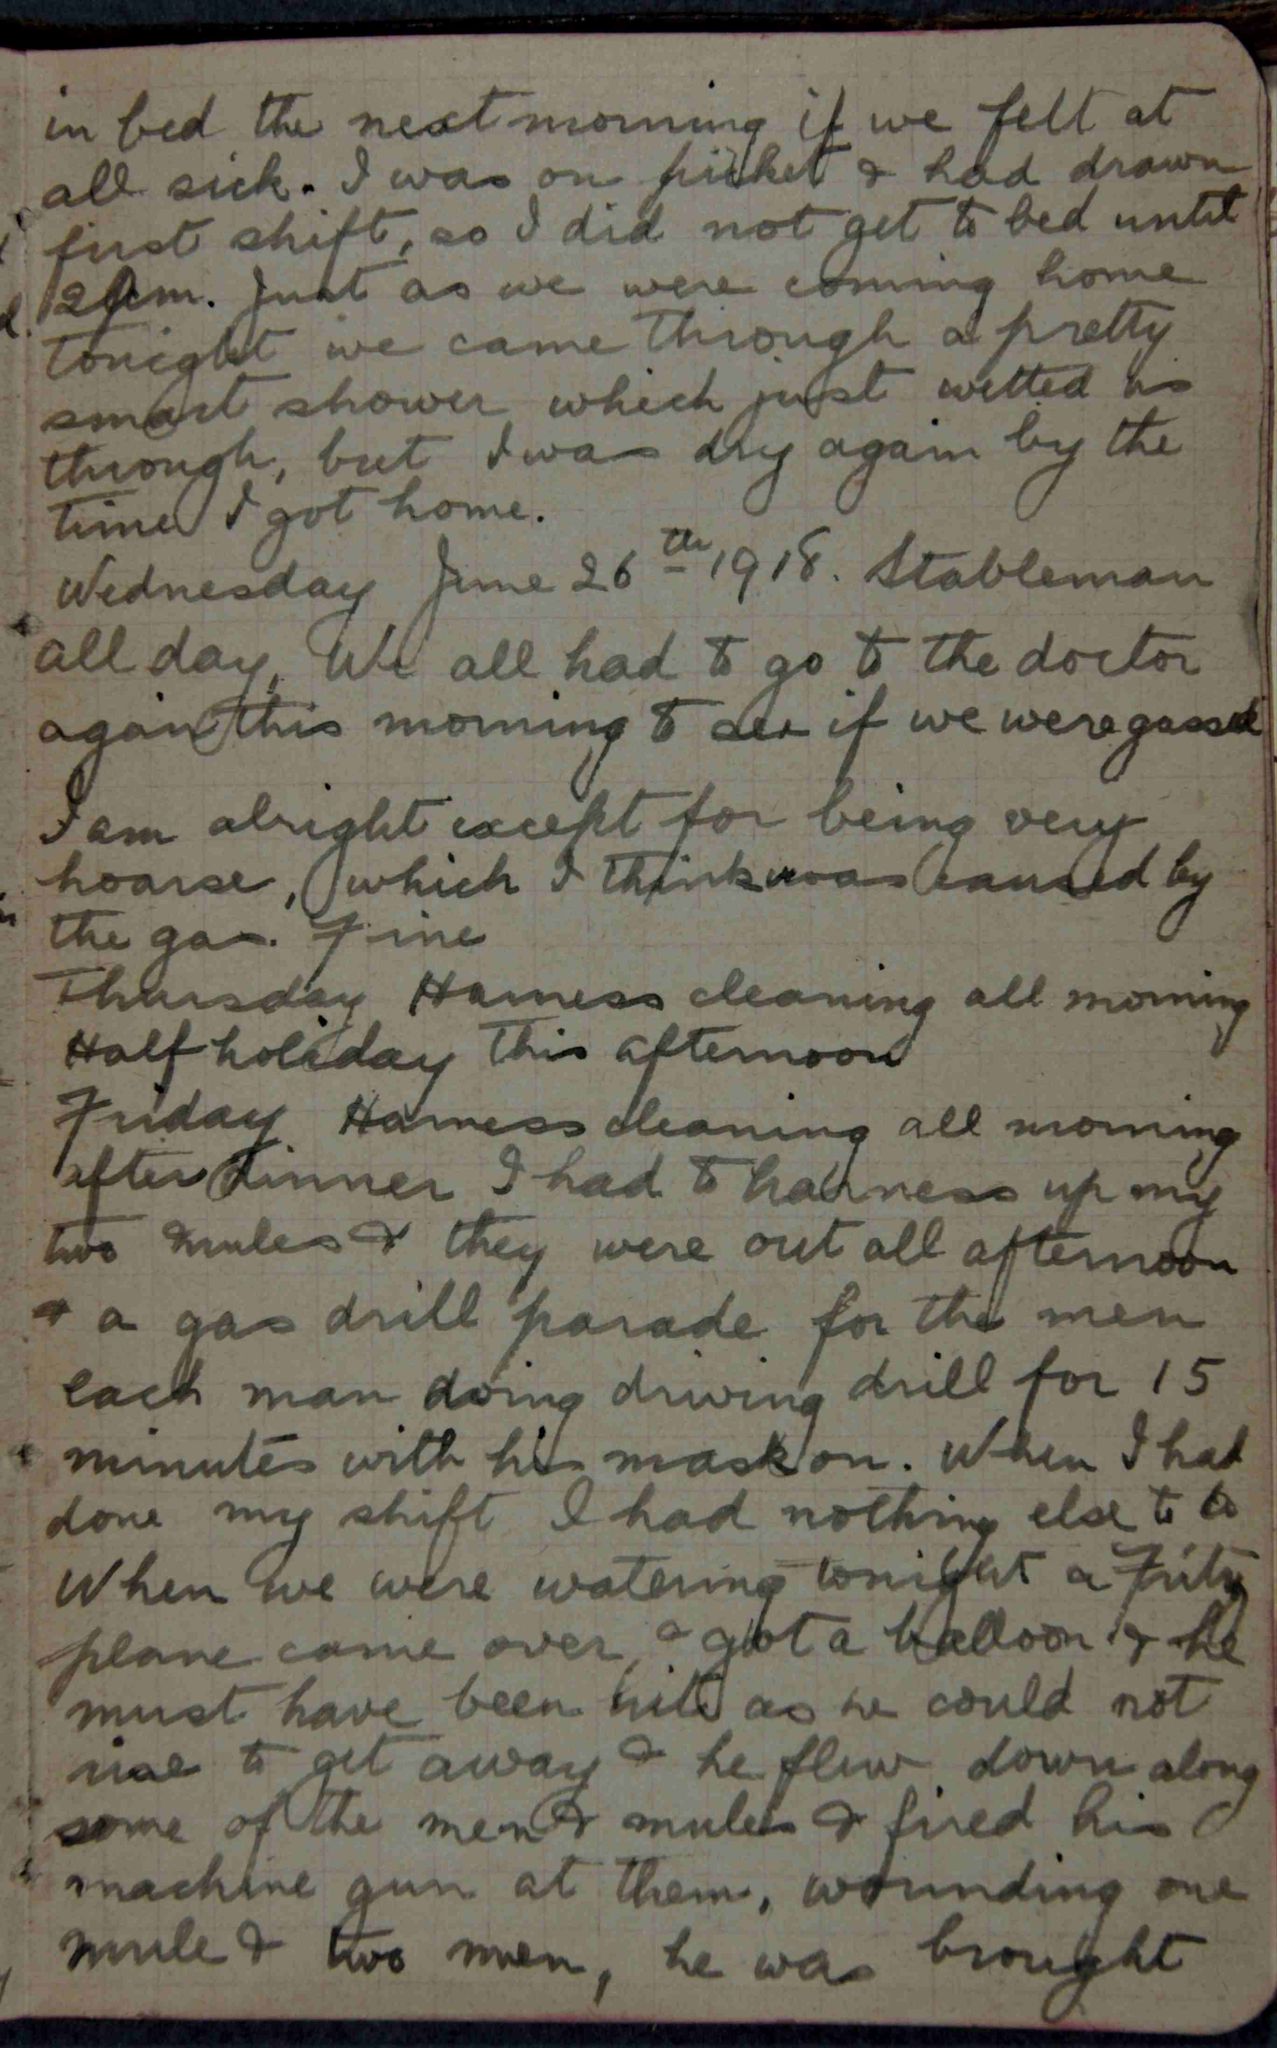 in bed the next morning if we felt at
all sick. I was on picket & had drawn
first shift, so I did not get to bed until
Just as we were coming home
tonight we came through a pretty
smart shower which just wetted us
through, but I was dry again by the
time I got home.
Wednesday June 26th 1918. Stableman
all day, We all had to go to the doctor
again this morning to see if we were gassed
I am alright except for being very
hoarse, which I think was caused by
the gas. Fine
Thursday Harness cleaning all morning
Half holiday this afternoon
Friday Harness cleaning all morning
after dinner I had to harness up my
two mules & they were out all afternoon
& a gas drill parade for the men
each man doing driving drill for 15
minutes with his mask on. When I had
done my shift I had nothing else to do
When we were watering tonight a Fritz
plane came over, & got a balloon & he
must have been hit as he could not
rise to get away & he flew down along
some of the men & mules & fired his
machine gun at them, wounding one
mule & two men, he was brought